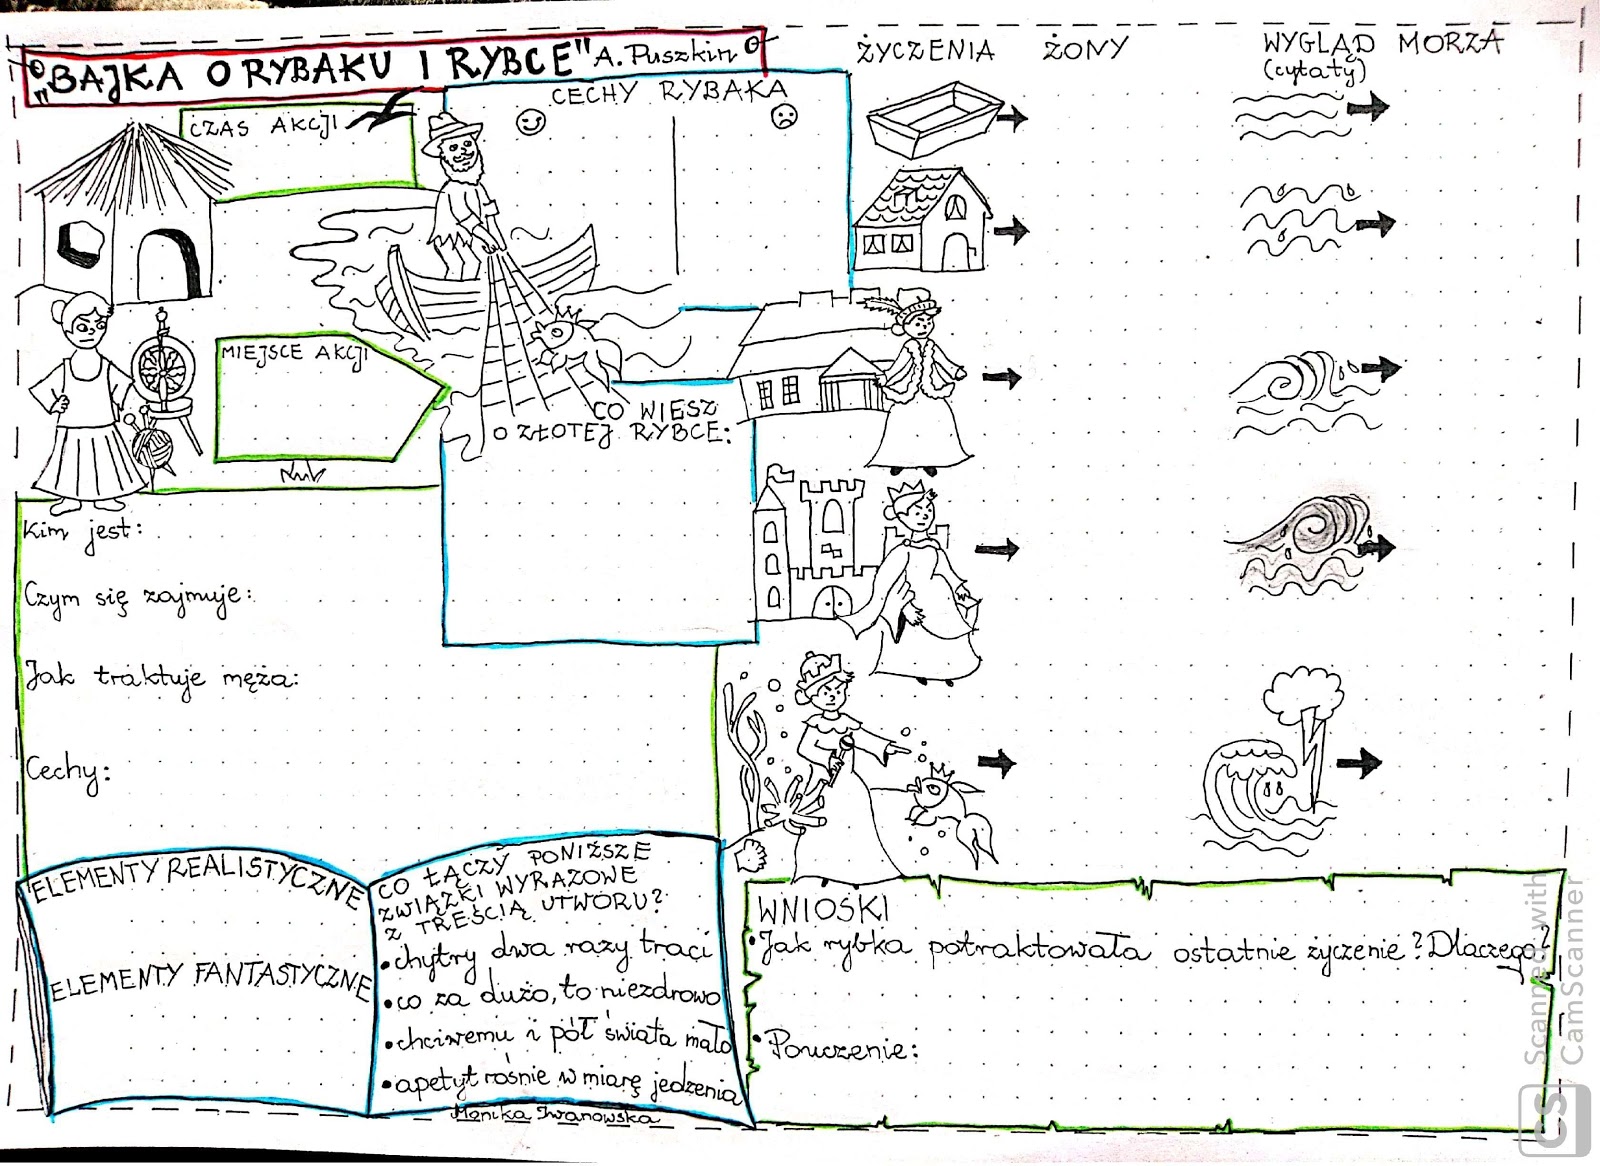 „BAJKA O RYBAKU I RYBCE" A. Puszkin
CZAS AKCJI
CECHY RYBAKA
MIEJSCE AKCJI
CO WIESZ
O ZŁOTEJ RYBCE:
Kim jest:
Czym się zajmuje:
Jak traktuje męża:
Cechy:
ELEMENTY REALISTYCZNE
ELEMENTY FANTASTYCZNE
CO ŁĄCZY PONIŻSZE
ZWIĄZKI WYRAZOWE
Z TREŚCIĄ UTWORU?
• chytry dwa razy traci
• co za dużo, to niezdrowo
• chciwemu i pół świata mało
• apetyt rośnie w miarę jedzenia
Monika Iwanowska
ŻYCZENIA ŻONY
WYGLĄD MORZA
(cytaty)
WNIOSKI
• Jak rybka potraktowała ostatnie życzenie? Dlaczego?
• Pouczenie:
Scanned with
CamScanner
CS